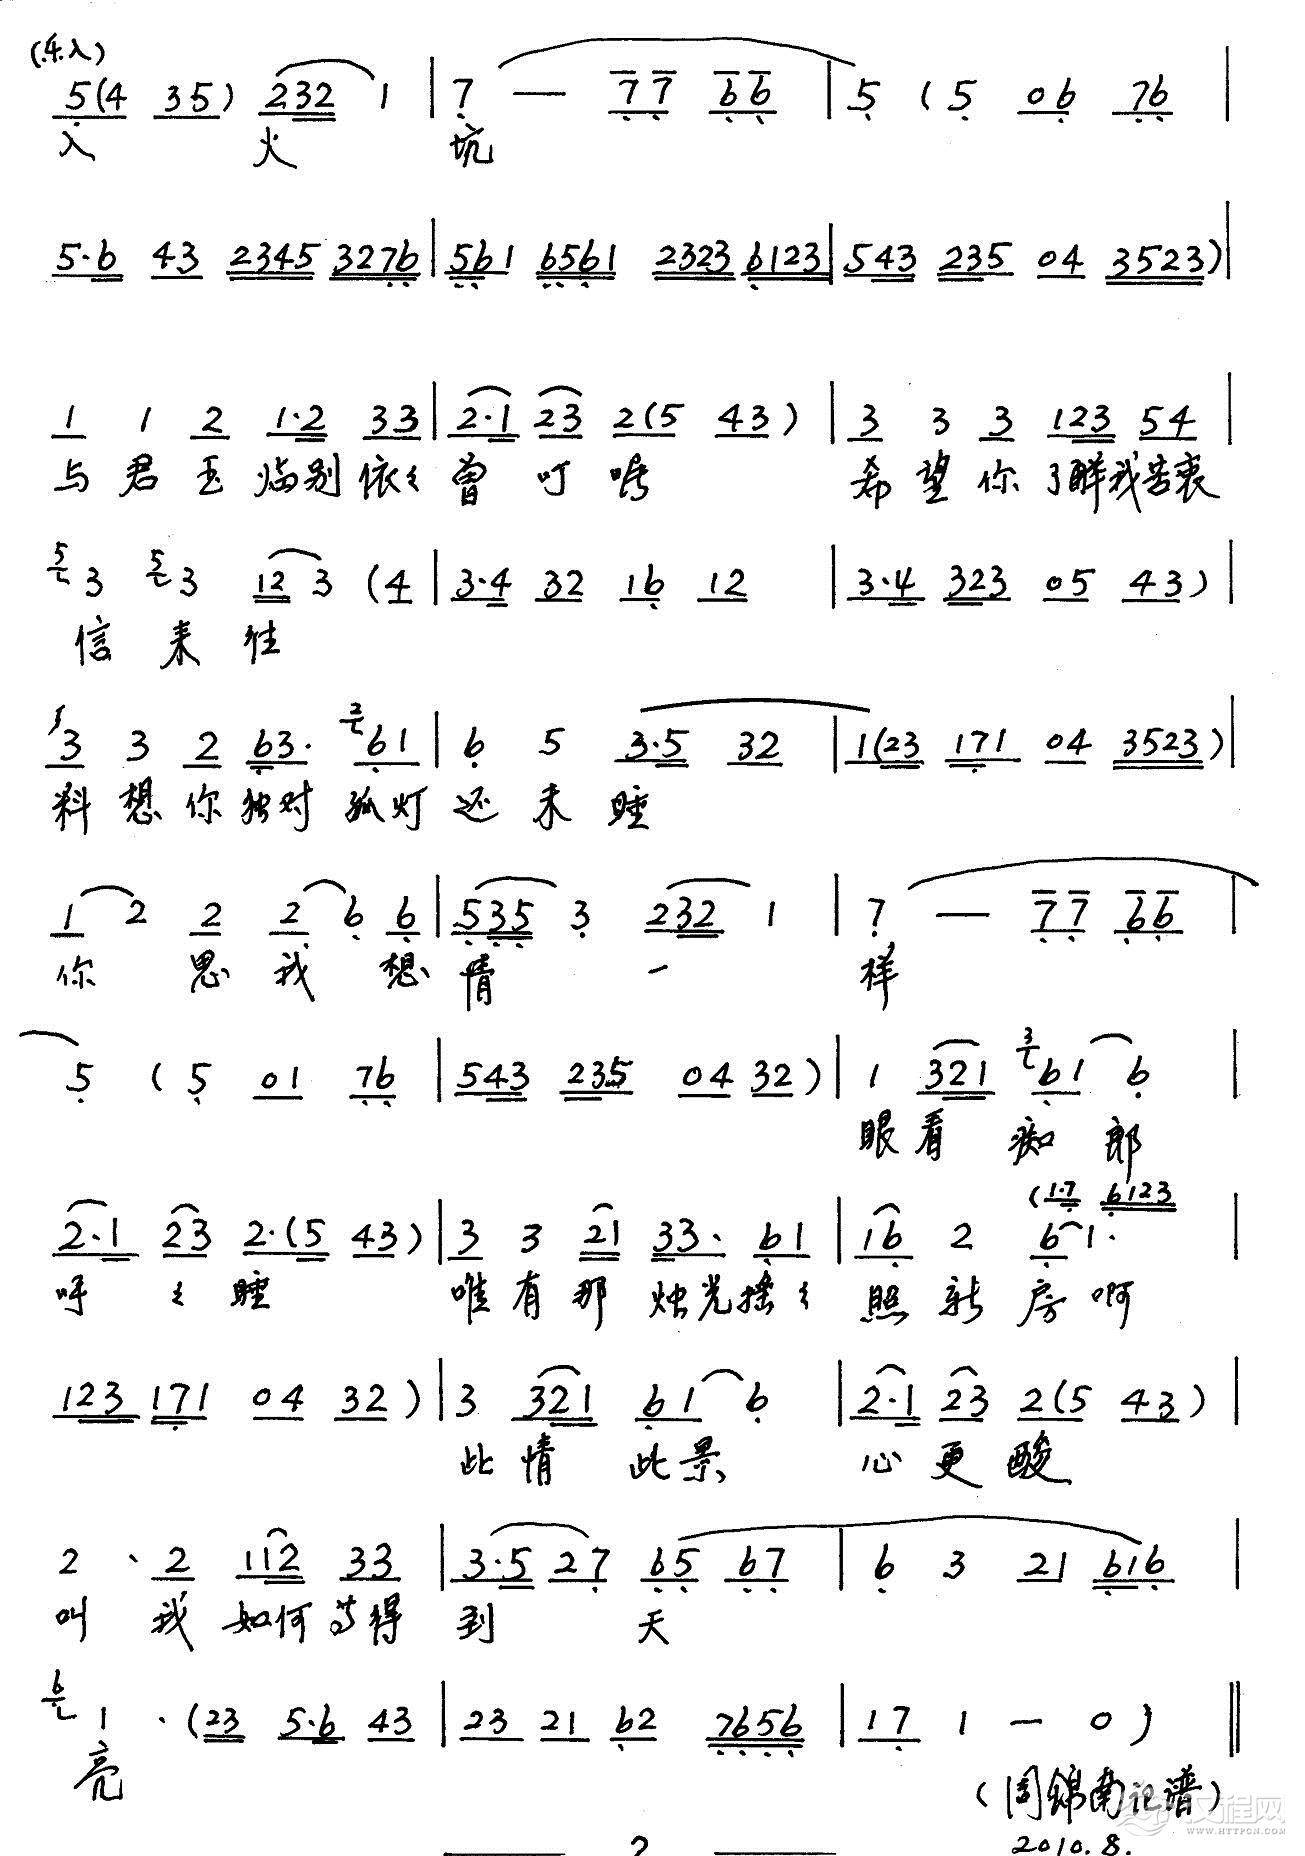 (乐入)
5(4 35) 232 1 | 7 — 77 66 | 5 (5 06 76 |
入 火 坑
5·6 43 2345 3276 | 561 6561 2323 6123 | 543 235 04 3523) |
1 1 2 1·2 33 | 2·1 23 2(5 43) | 3 3 3 123 54 |
与 君 玉 临别 依々 曾 叮 咛 希 望 你 了解我苦衷
5 3 5 3 12 3 (4 | 3·4 32 16 12 | 3·4 323 05 43) |
信 来 往
3 3 2 63· 2 61 | 6 5 3·5 32 | 1(23 171 04 3523) |
料 想 你 独对 孤灯 还 未 睡
1 2 2 2 6 6 | 535 3 232 1 | 7 — 77 66 |
你 思 我 想 情 一 样
5 (5 01 76 | 543 235 04 32) | 1 321 3 61 6 |
眼 看 痴 郎
(1·7 6123
2·1 23 2·(5 43) | 3 3 21 33· 61 | 16 2 6 1· |
呼 々 睡 唯 有 那 烛光摇々 照 新 房 啊
123 171 04 32) | 3 321 61 6 | 2·1 23 2(5 43) |
此 情 此 景 心 更 酸
2 · 2 112 33 | 3·5 27 65 67 | 6 3 21 616 |
叫 我 如何 等得 到 天
6 1 · (23 5·6 43 | 23 21 62 7656 | 17 1 — 0) ‖
亮
(周锦南记谱)
2010.8.
2
文程网
WWW.HTTPCN.COM